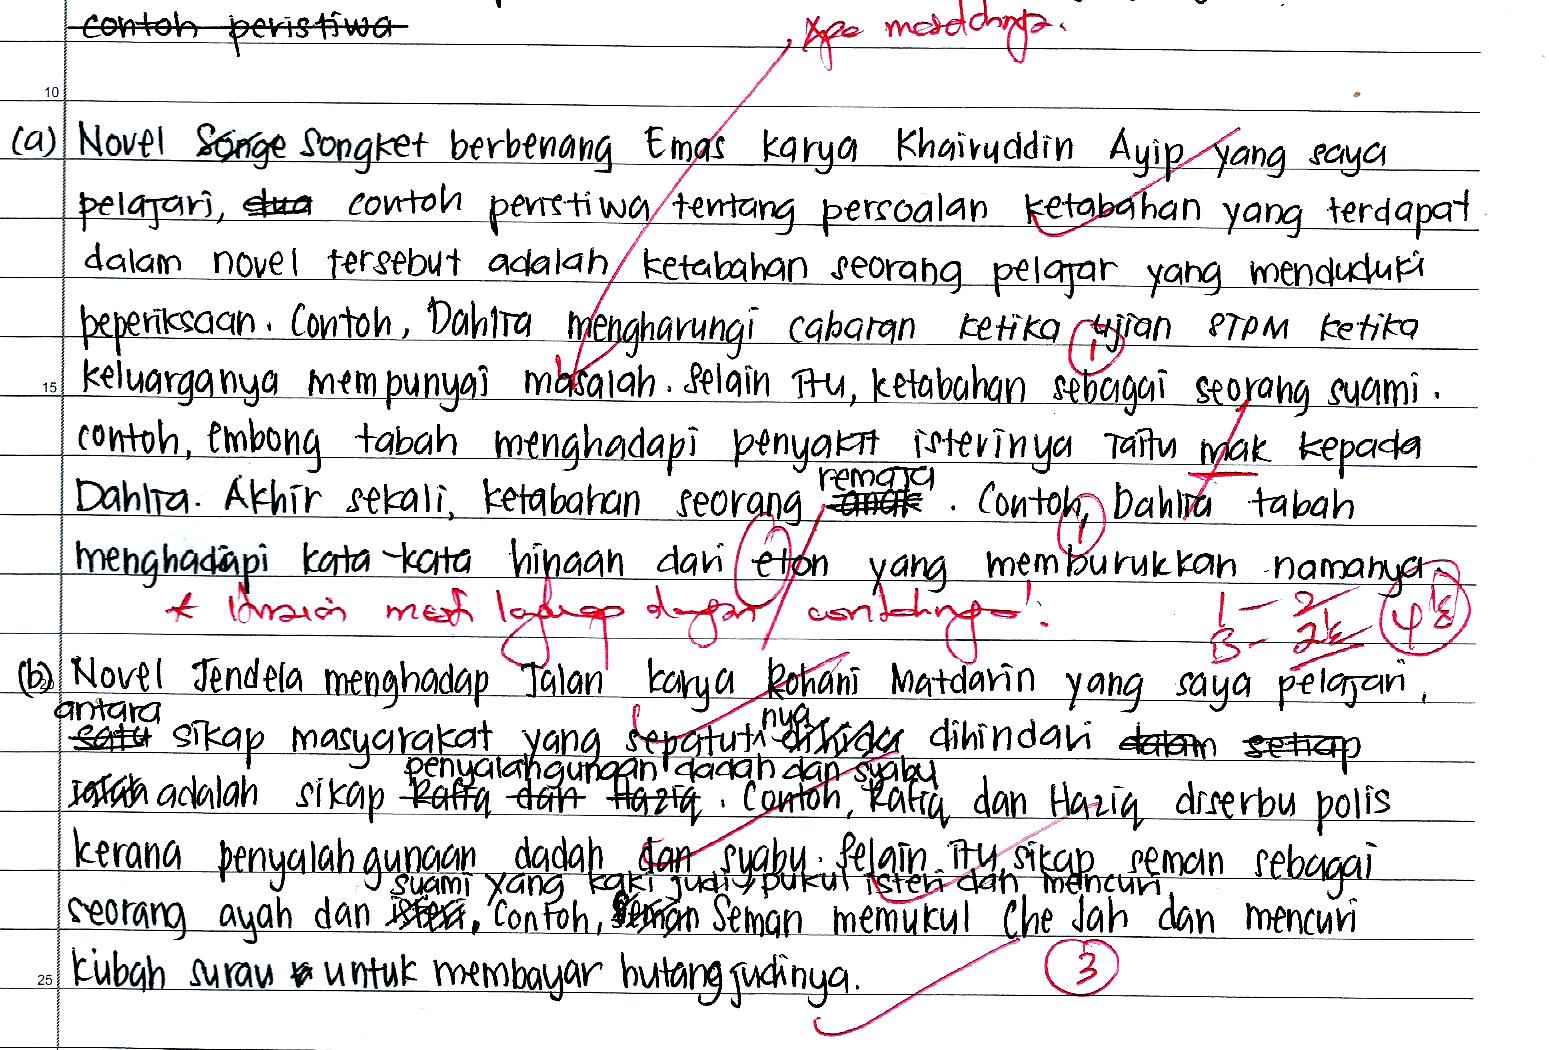 contoh peristiwa
Apa masalahnya.
10
(a) Novel Songe Songket berbenang Emas karya Khairuddin Ayip yang saya
pelajari, dua contoh peristiwa tentang persoalan ketabahan yang terdapat
dalam novel tersebut adalah ketabahan seorang pelajar yang menduduki
peperiksaan. Contoh, Dahlia mengharungi cabaran ketika ujian STPM ketika
1
15 keluarganya mempunyai masalah. Selain itu, ketabahan sebagai seorang suami.
contoh, embong tabah menghadapi penyakit isterinya iaitu mak kepada
remaja
Dahlia. Akhir sekali, ketabahan seorang anak. Contoh, Dahlia tabah
1
menghadapi kata-kata hinaan dari eton yang memburukkan namanya.
* mesti lengkap dengan contohnya!
1 - 2
B - 2½ 4½
(b) Novel Jendela menghadap Jalan karya Rohani Matdarin yang saya pelajari,
antara nya
satu sikap masyarakat yang sepatutnya dihindari dalam setiap
penyalahgunaan dadah dan syabu
ialah adalah sikap Rafiq dan Haziq. Contoh, Rafiq dan Haziq diserbu polis
kerana penyalahgunaan dadah dan syabu. Selain itu sikap seman sebagai
suami yang kaki judi, pukul isteri dan mencuri
seorang ayah dan isteri, Contoh, Seman Seman memukul Che Jah dan mencuri
25 kubah surau untuk membayar hutang judinya.
3